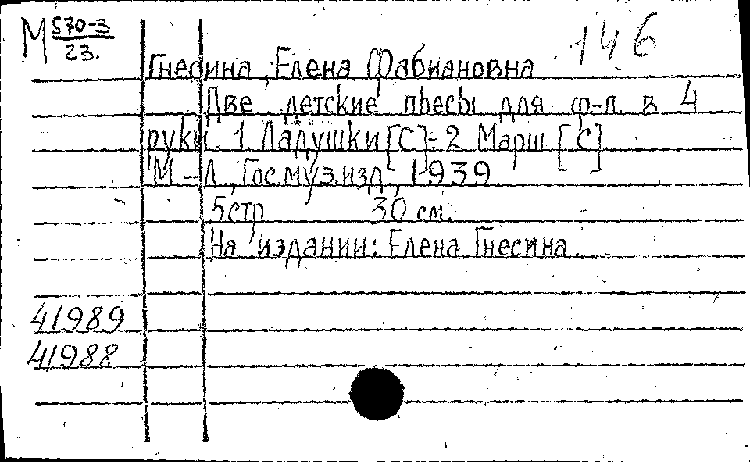 М 570-3
23.
146
Гнесина, Елена Фабиановна
Две детские пьесы для ф-п. в 4
руки. 1 Ладушки [С]-2 Марш [С]
М.-Л., Госмузизд, 1939
5стр 30 см.
На издании: Елена Гнесина.
41989
41988